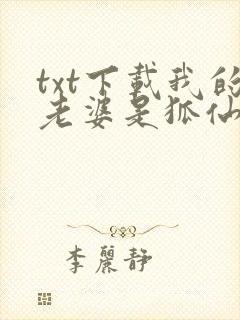 txt下載我的
老婆是狐仙
李麗靜